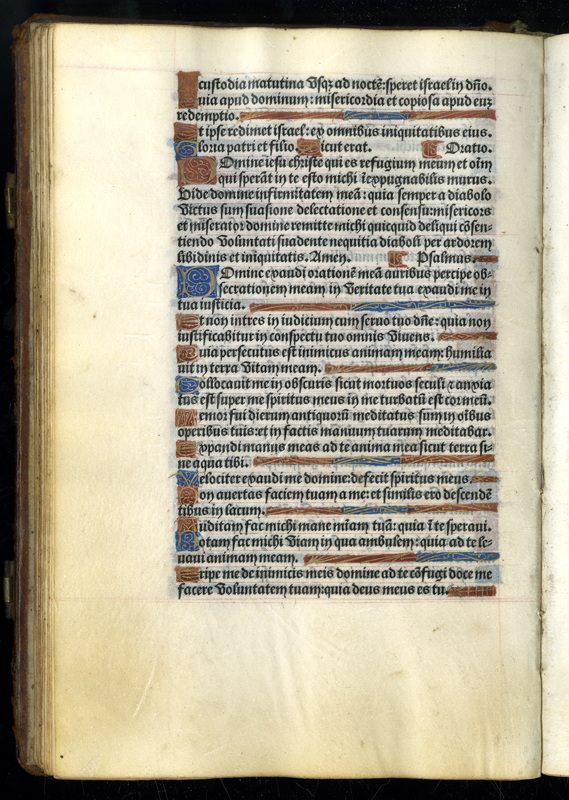 A custodia matutina vsq3 ad nocte᷒: speret israel in dn̄o.
Quia apud dominum: misericordia et copiosa apud eu3
redemptio.
Et ipse redimet israel: ex omnibus iniquitatibus eius.
Gloria patri et filio. Sicut erat. Oratio.
Domine iesu christe qui es refugium meum et oīm
qui sperāt in te esto michi īexpugnabilis murus.
Vide domine infirmitatem meā: quia semper a diabolo
victus sum suasione delectatione et consensu: misericors
et miserator domine remitte michi quicquid deliqui cōsen-
tiendo voluntati suadente nequitia diaboli per ardorem
libidinis et iniquitatis. Amen. Psalmus.
Domine exaudi orationē meā auribus percipe ob-
secrationem meam in veritate tua exaudi me in
tua iusticia.
Et non intres in iudicium cum seruo tuo dn̄e: quia non
iustificabitur in conspectu tuo omnis viuens.
Quia persecutus est inimicus animam meam: humilia
uit in terra vitam meam.
Collocauit me in obscuris sicut mortuos seculi ⁊ anxia
tus est super me spiritus meus in me turbatū est cor meū.
Memor fui dierum antiquorū meditatus sum in oībus
operibus tuis: et in factis manuum tuarum meditabar.
Expandi manus meas ad te anima mea sicut terra si-
ne aqua tibi.
Velociter exaudi me domine: defecit spiritus meus.
Non auertas faciem tuam a me: et similis ero descendē
tibus in lacum.
Auditam fac michi mane mīam tuā: quia ī te speraui.
Notam fac michi viam in qua ambulem: quia ad te le-
uaui animam meam.
Eripe me de inimicis meis domine ad te cōfugi doce me
facere voluntatem tuam: quia deus meus es tu.